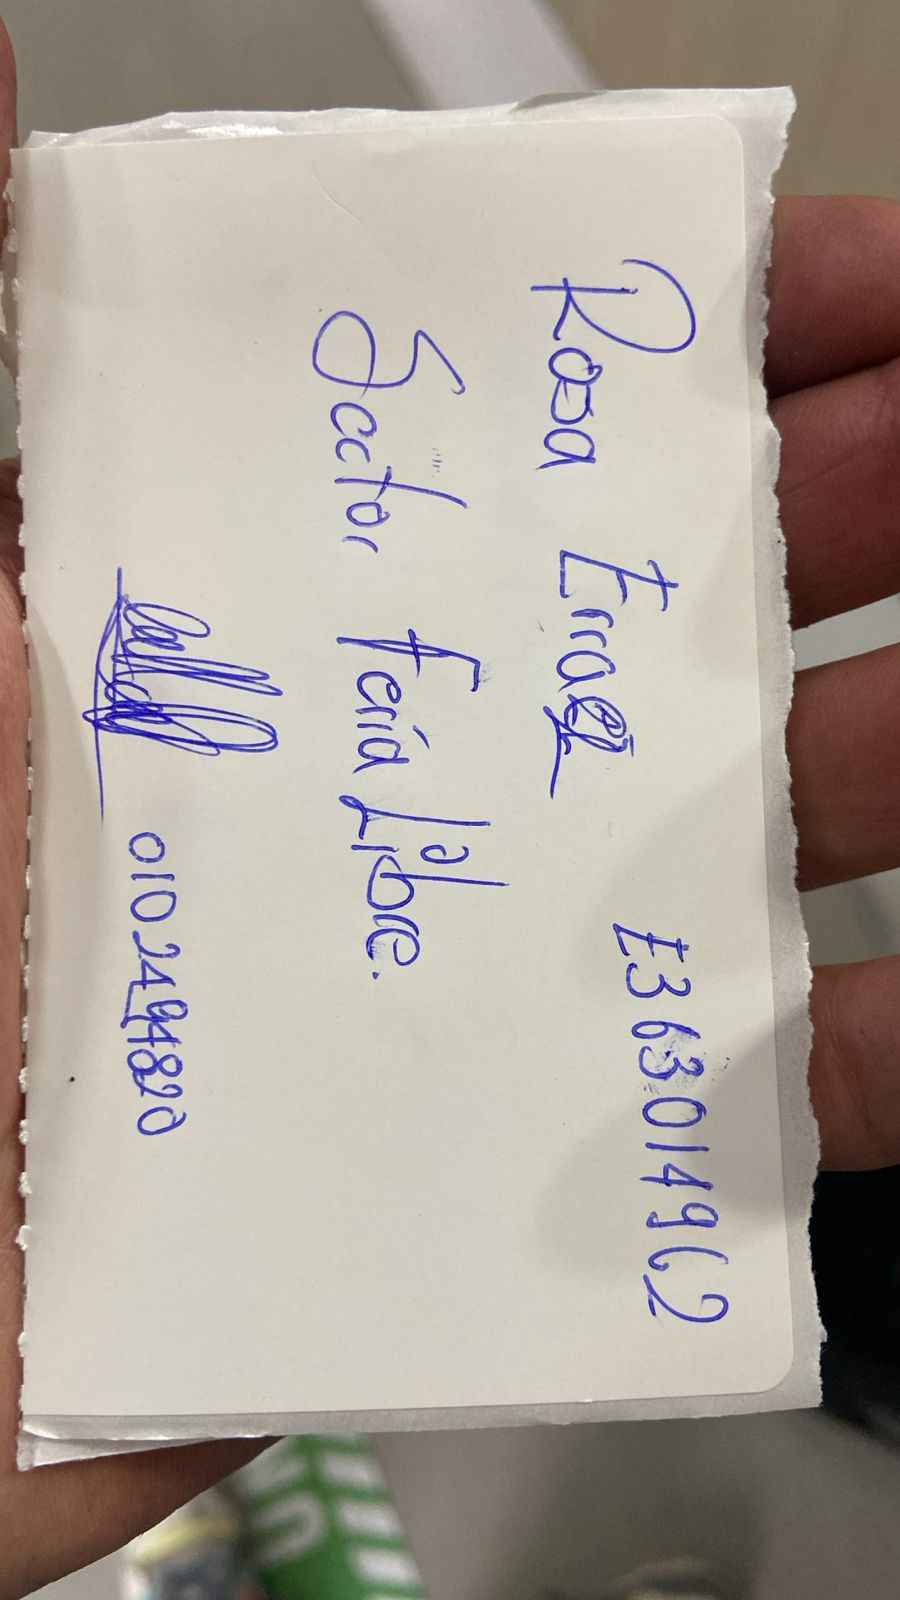 Rosa Erraez E363014962
Sector Feria Libre.
0102494820